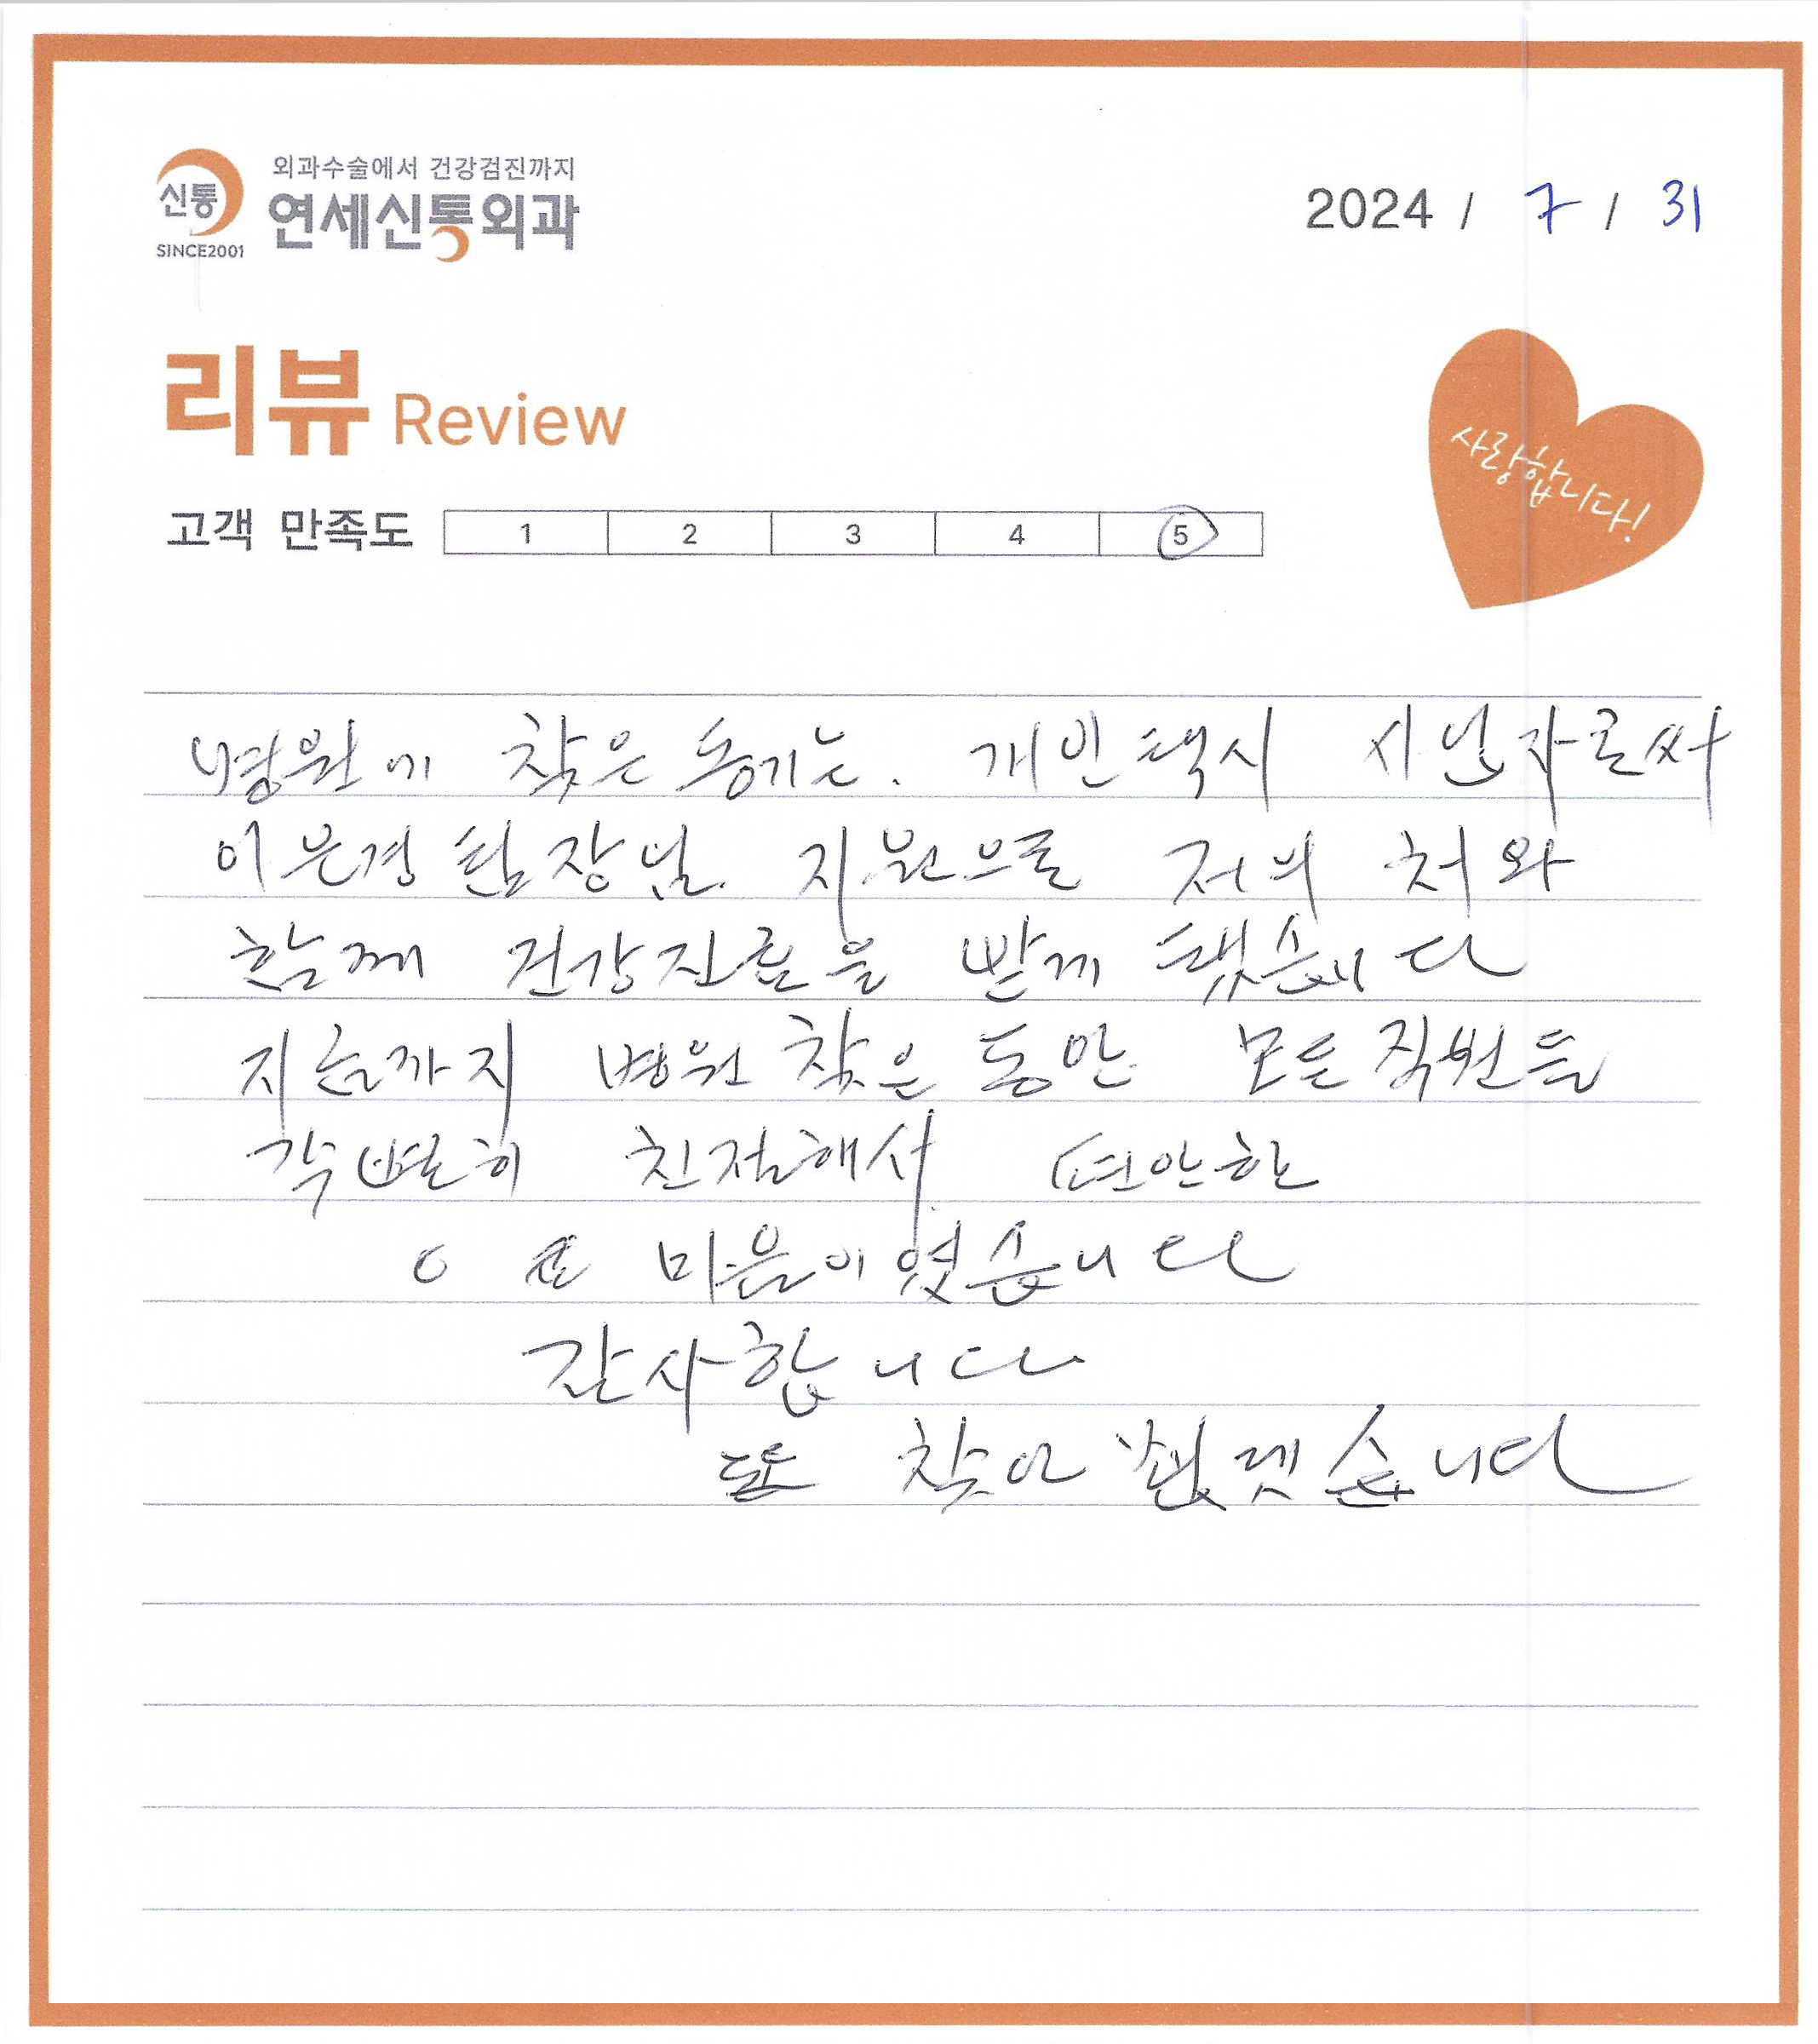 외과수술에서 건강검진까지
신통 연세신통외과
SINCE2001
2024 / 7 / 31
리뷰 Review
사랑합니다!
고객 만족도 1 2 3 4 5
병원에 찾은 동기는. 개인택시 사업자로써
이은경 팀장님. 지원으로 저의 처와
함께 건강진료을 받게 됐습니다
지금까지 병원 찾은 동안 모든 직원들
각별히 친절해서 편안한
마음이였습니다
감사합니다
또 찾아 뵙겠습니다